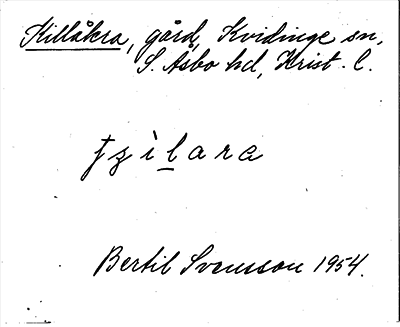 Killåkra, gård, Kvidinge sn,
S. Åsbo hd, Krist. l.
Bertil Svensson 1954.